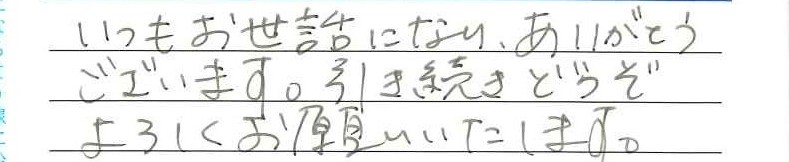 いつもお世話になり、ありがとう
ございます。引き続きどうぞ
よろしくお願いいたします。